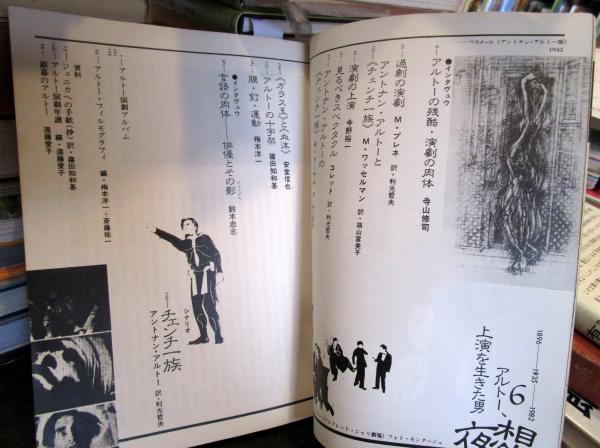 ベルメール〈アントナン・アルトー像〉
1942
1896——1935——1982
6
アルトー、
上演を生きた男
夜想
●インタヴュウ
アルトーの残酷・演劇の肉体 寺山修司
過剰の演劇 M・プレネ 訳・利光哲夫
アントナン・アルトーと
《チェンチ一族》 M・ワッセルマン 訳・篠山富美子
演劇の上演 今野裕一
見るべきスペクタクル コレット 訳・利光哲夫
アントナン・アルトーの
《チェンチ一族》
《アルフレッド・ジャリ劇場》フォト・モンタージュ
《ガラス玉》と《血沫》 安堂信也
アルトーの十字架 篠田知和基
膜・釘・運動 梅本洋一
●インタヴュウ
言語の肉体——俳優とその影 鈴木忠志
シナリオ
チェンチ一族
アントナン・アルトー 訳・利光哲夫
アルトー演劇アルバム
アルトー・フィルモグラフィ 編・梅本洋一+斎藤祐一
資料
ジェニカへの手紙(抄) 訳・篠田知和基
アルトー演劇年譜 編・遠藤愛子
銀幕のアルトー 遠藤愛子